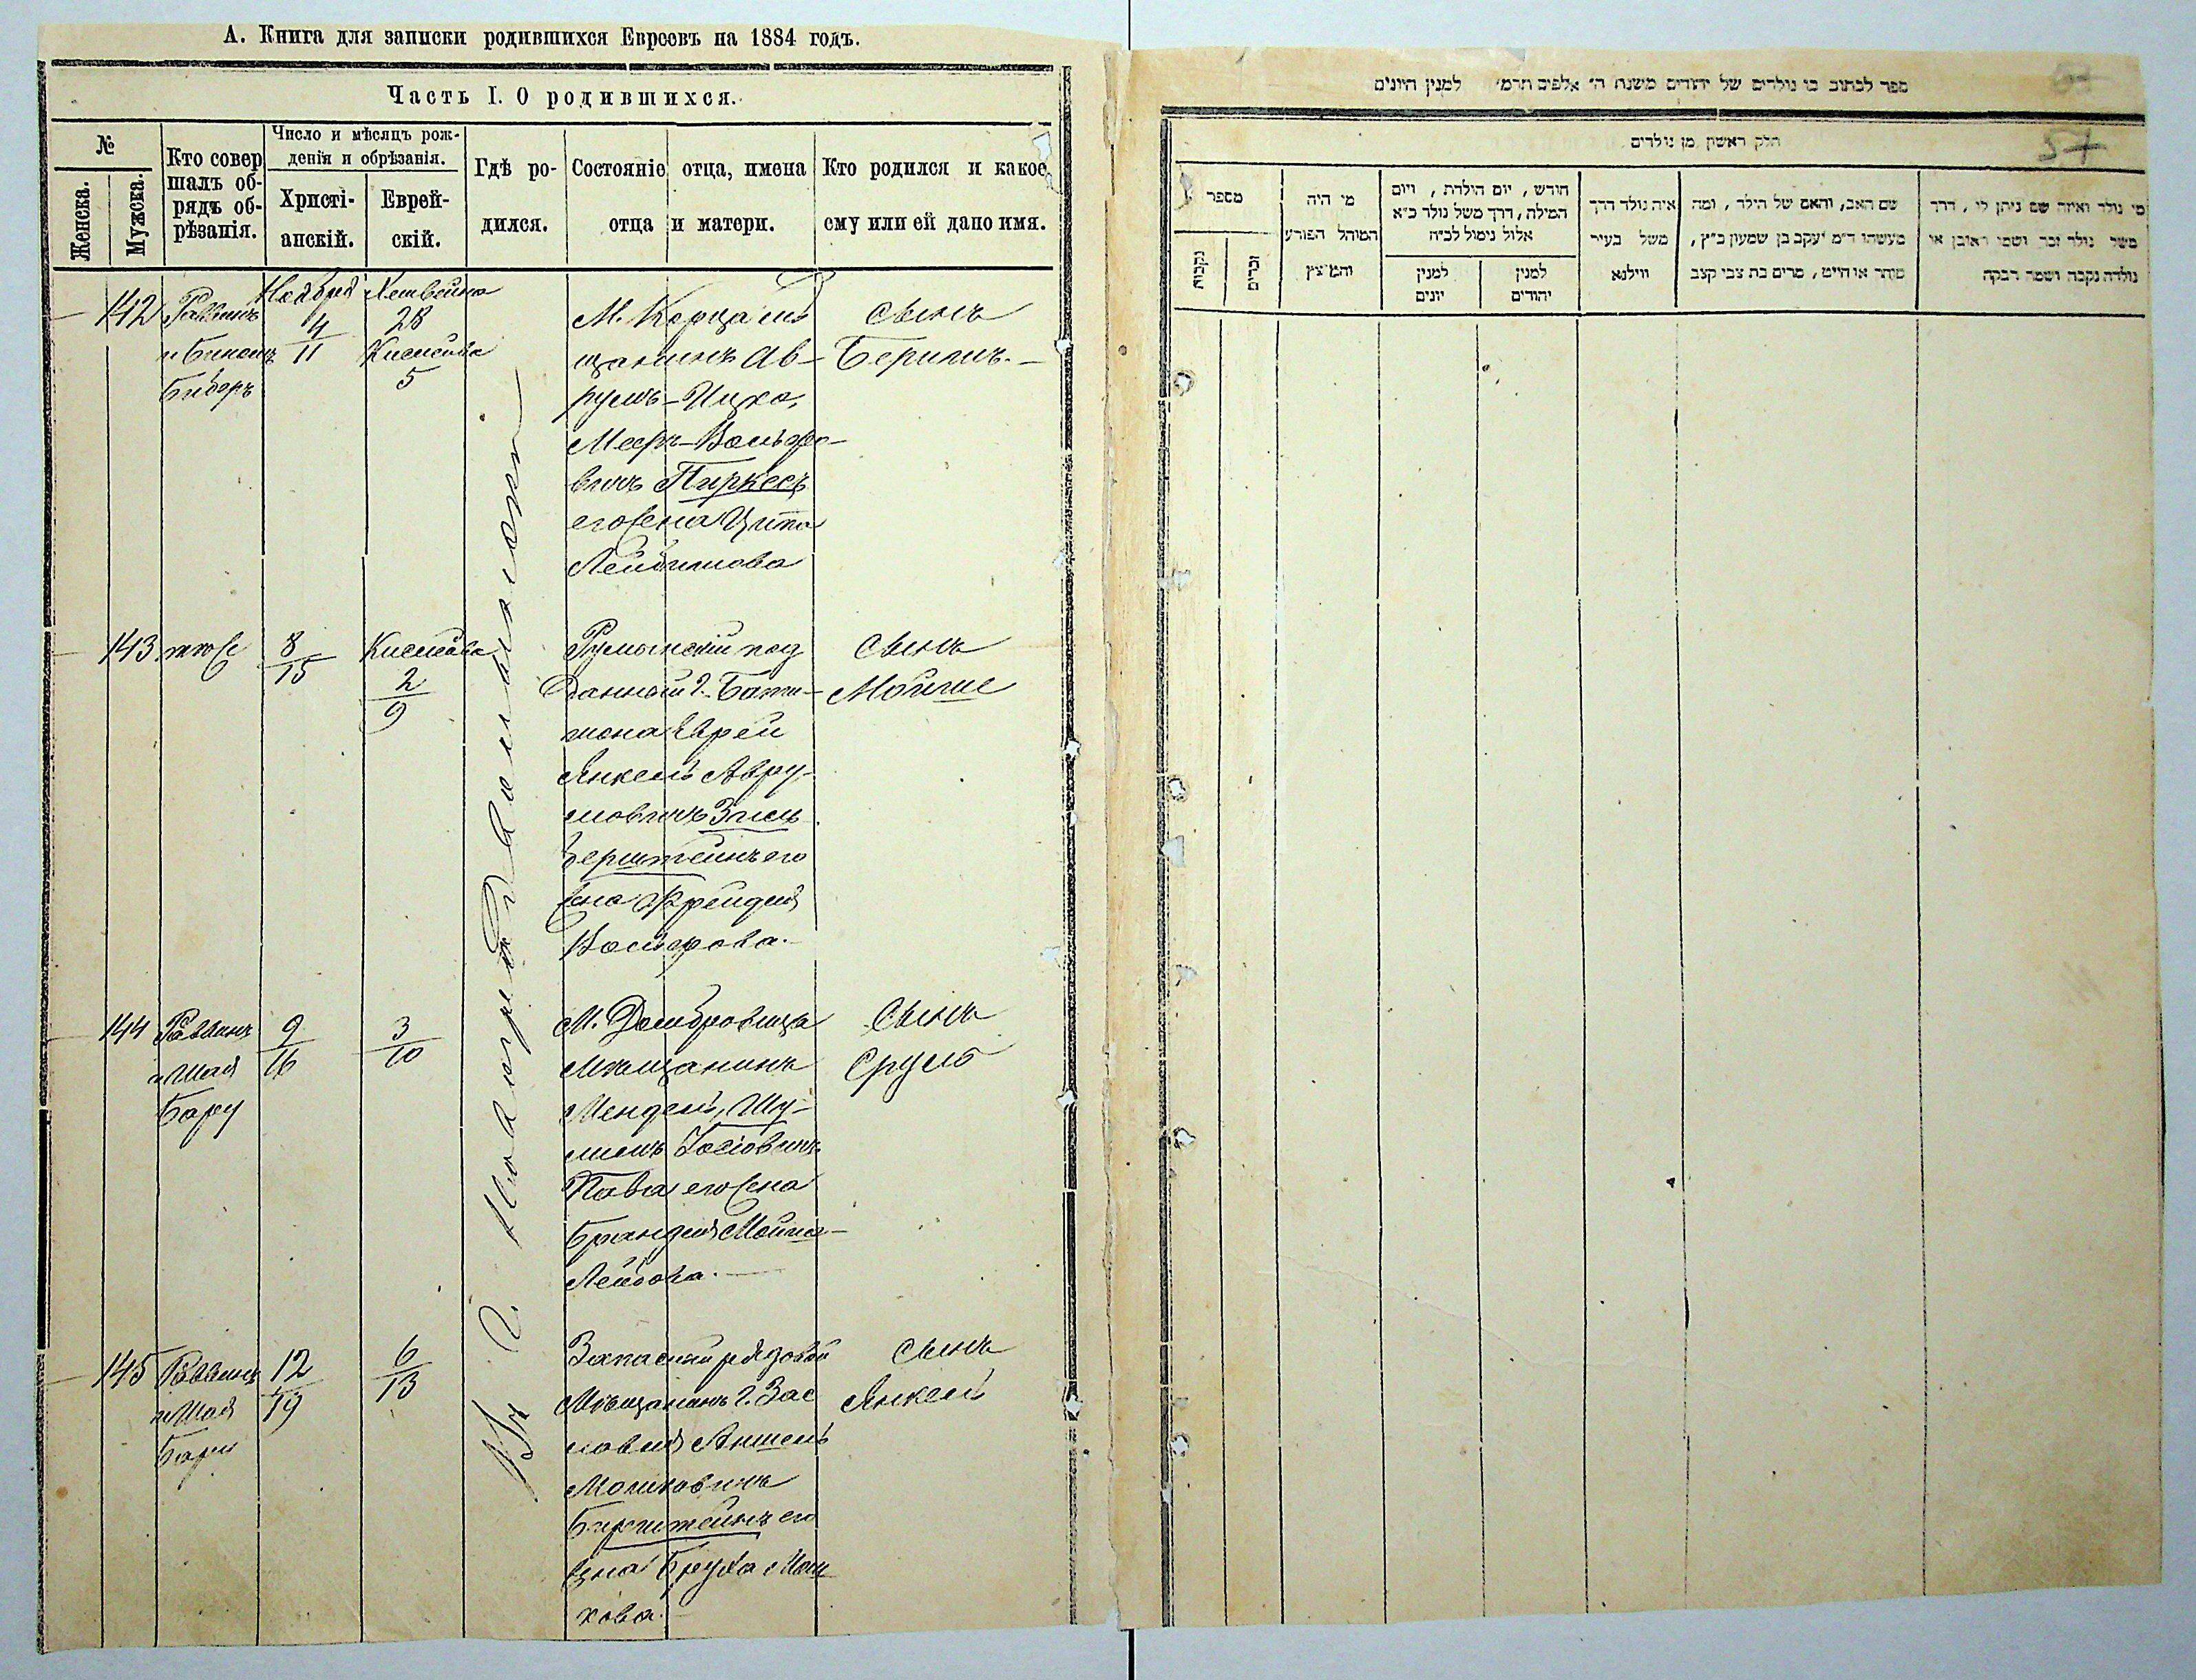 А. Книга для записки родившихся Евреевъ на 1884 годъ.
Часть I. О родившихся.
№
Женска.
Мужска.
Кто совер
шалъ об-
рядъ об-
рѣзанія.
Число и мѣсяцъ рож-
денія и обрѣзанія.
Христі-
анскій.
Еврей-
скій.
Гдѣ ро-
дился.
Состояніе отца, имена
отца и матери.
Кто родился и какое
ему или ей дано имя.
142
Раввинъ
Ноября
4
11
28
Кислева
5
М.
щанинъ Ав-
румъ-Ицко,
Меер-Вольфо-
вичъ Пиркесъ
его жена Ципа
сынъ
Беришъ.
143
тоже
8
15
Кислева
2
9
Румынскій под
данный г. Бото-
шона Еврей
Янкель Авру-
мовичъ Зиль
берштейнъ его
жена Фрейдля
Вольфова.
сынъ
Мойше
144
Раввинъ
и Шая
9
16
3
10
М. Домбровица
Мѣщанинъ
Мендель, Шу-
лимъ
его жена
Брандля Мошко-
Лейбова.
сынъ
Сруль
145
Раввинъ
и Шая
12
19
6
13
Запасный рядовой
Мѣщанинъ г. Зас
лавля Аншель
Мошковичъ
Беренштейнъ его
жена Бруха
хова.
сынъ
Янкель
Въ г.
ספר לכתוב בו נולדים של יהודים משנת ה' אלפים תרמ' למנין היונים
57
חלק ראשון מן נולדים
מספר
נקבות
זכרים
מי היה
המוהל הפורע
והמצץ
חודש, יום הולדת, ויום
המילה, דרך משל נולד כ"א
אלול נימול לכ"ה
למנין
יונים
למנין
יהודים
איה נולד דרך
משל בעיר
ווילנא
שם האב, והאם של הילד, ומה
מעשהו ד"מ יעקב בן שמעון כ"ץ,
סוחר או חייט, מרים בת צבי קצב
מי נולד ואיזה שם ניתן לו, דרך
משל נולד זכר ושמו ראובן או
נולדה נקבה ושמה רבקה